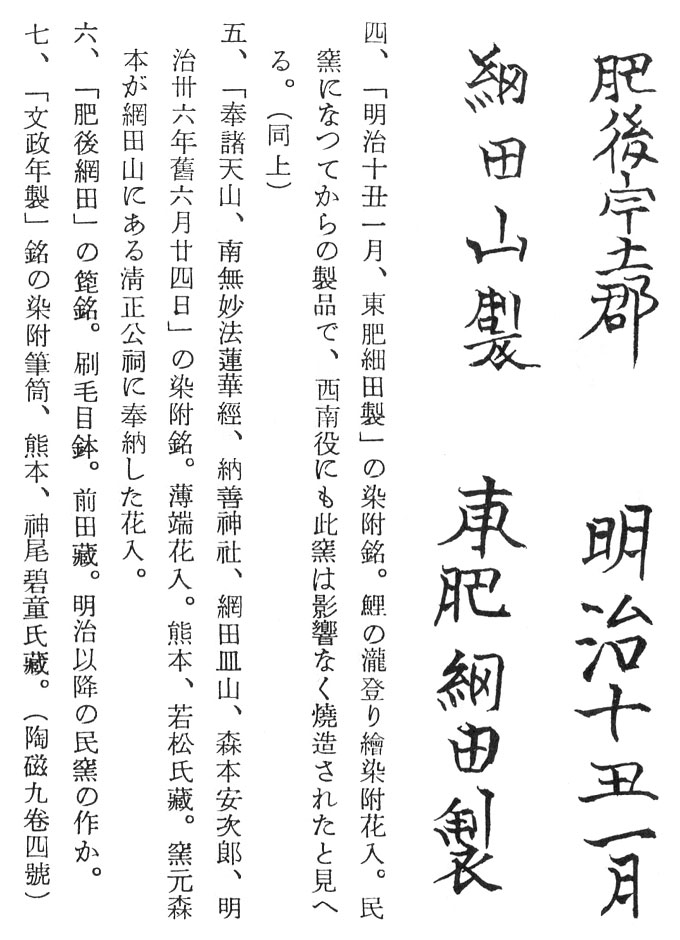 肥後宇土郡
網田山製
明治十丑一月
東肥網田製
四、「明治十丑一月、東肥細田製」の染附銘。鯉の瀧登り繪染附花入。民
窯になつてからの製品で、西南役にも此窯は影響なく燒造されたと見へ
る。（同上）
五、「奉諸天山、南無妙法蓮華經、納善神社、網田皿山、森本安次郎、明
治卅六年舊六月廿四日」の染附銘。薄端花入。熊本、若松氏藏。窯元森
本が網田山にある淸正公祠に奉納した花入。
六、「肥後網田」の箆銘。刷毛目鉢。前田藏。明治以降の民窯の作か。
七、「文政年製」銘の染附筆筒、熊本、神尾碧童氏藏。（陶磁九卷四號）